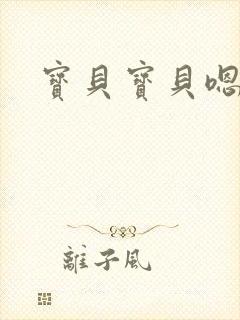 寶貝寶貝嗯
離子風